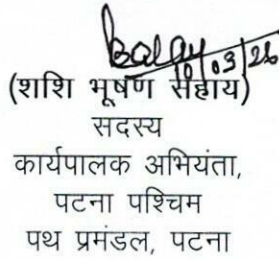 10/03/26
(शशि भूषण सहाय)
सदस्य
कार्यपालक अभियंता,
पटना पश्चिम
पथ प्रमंडल, पटना